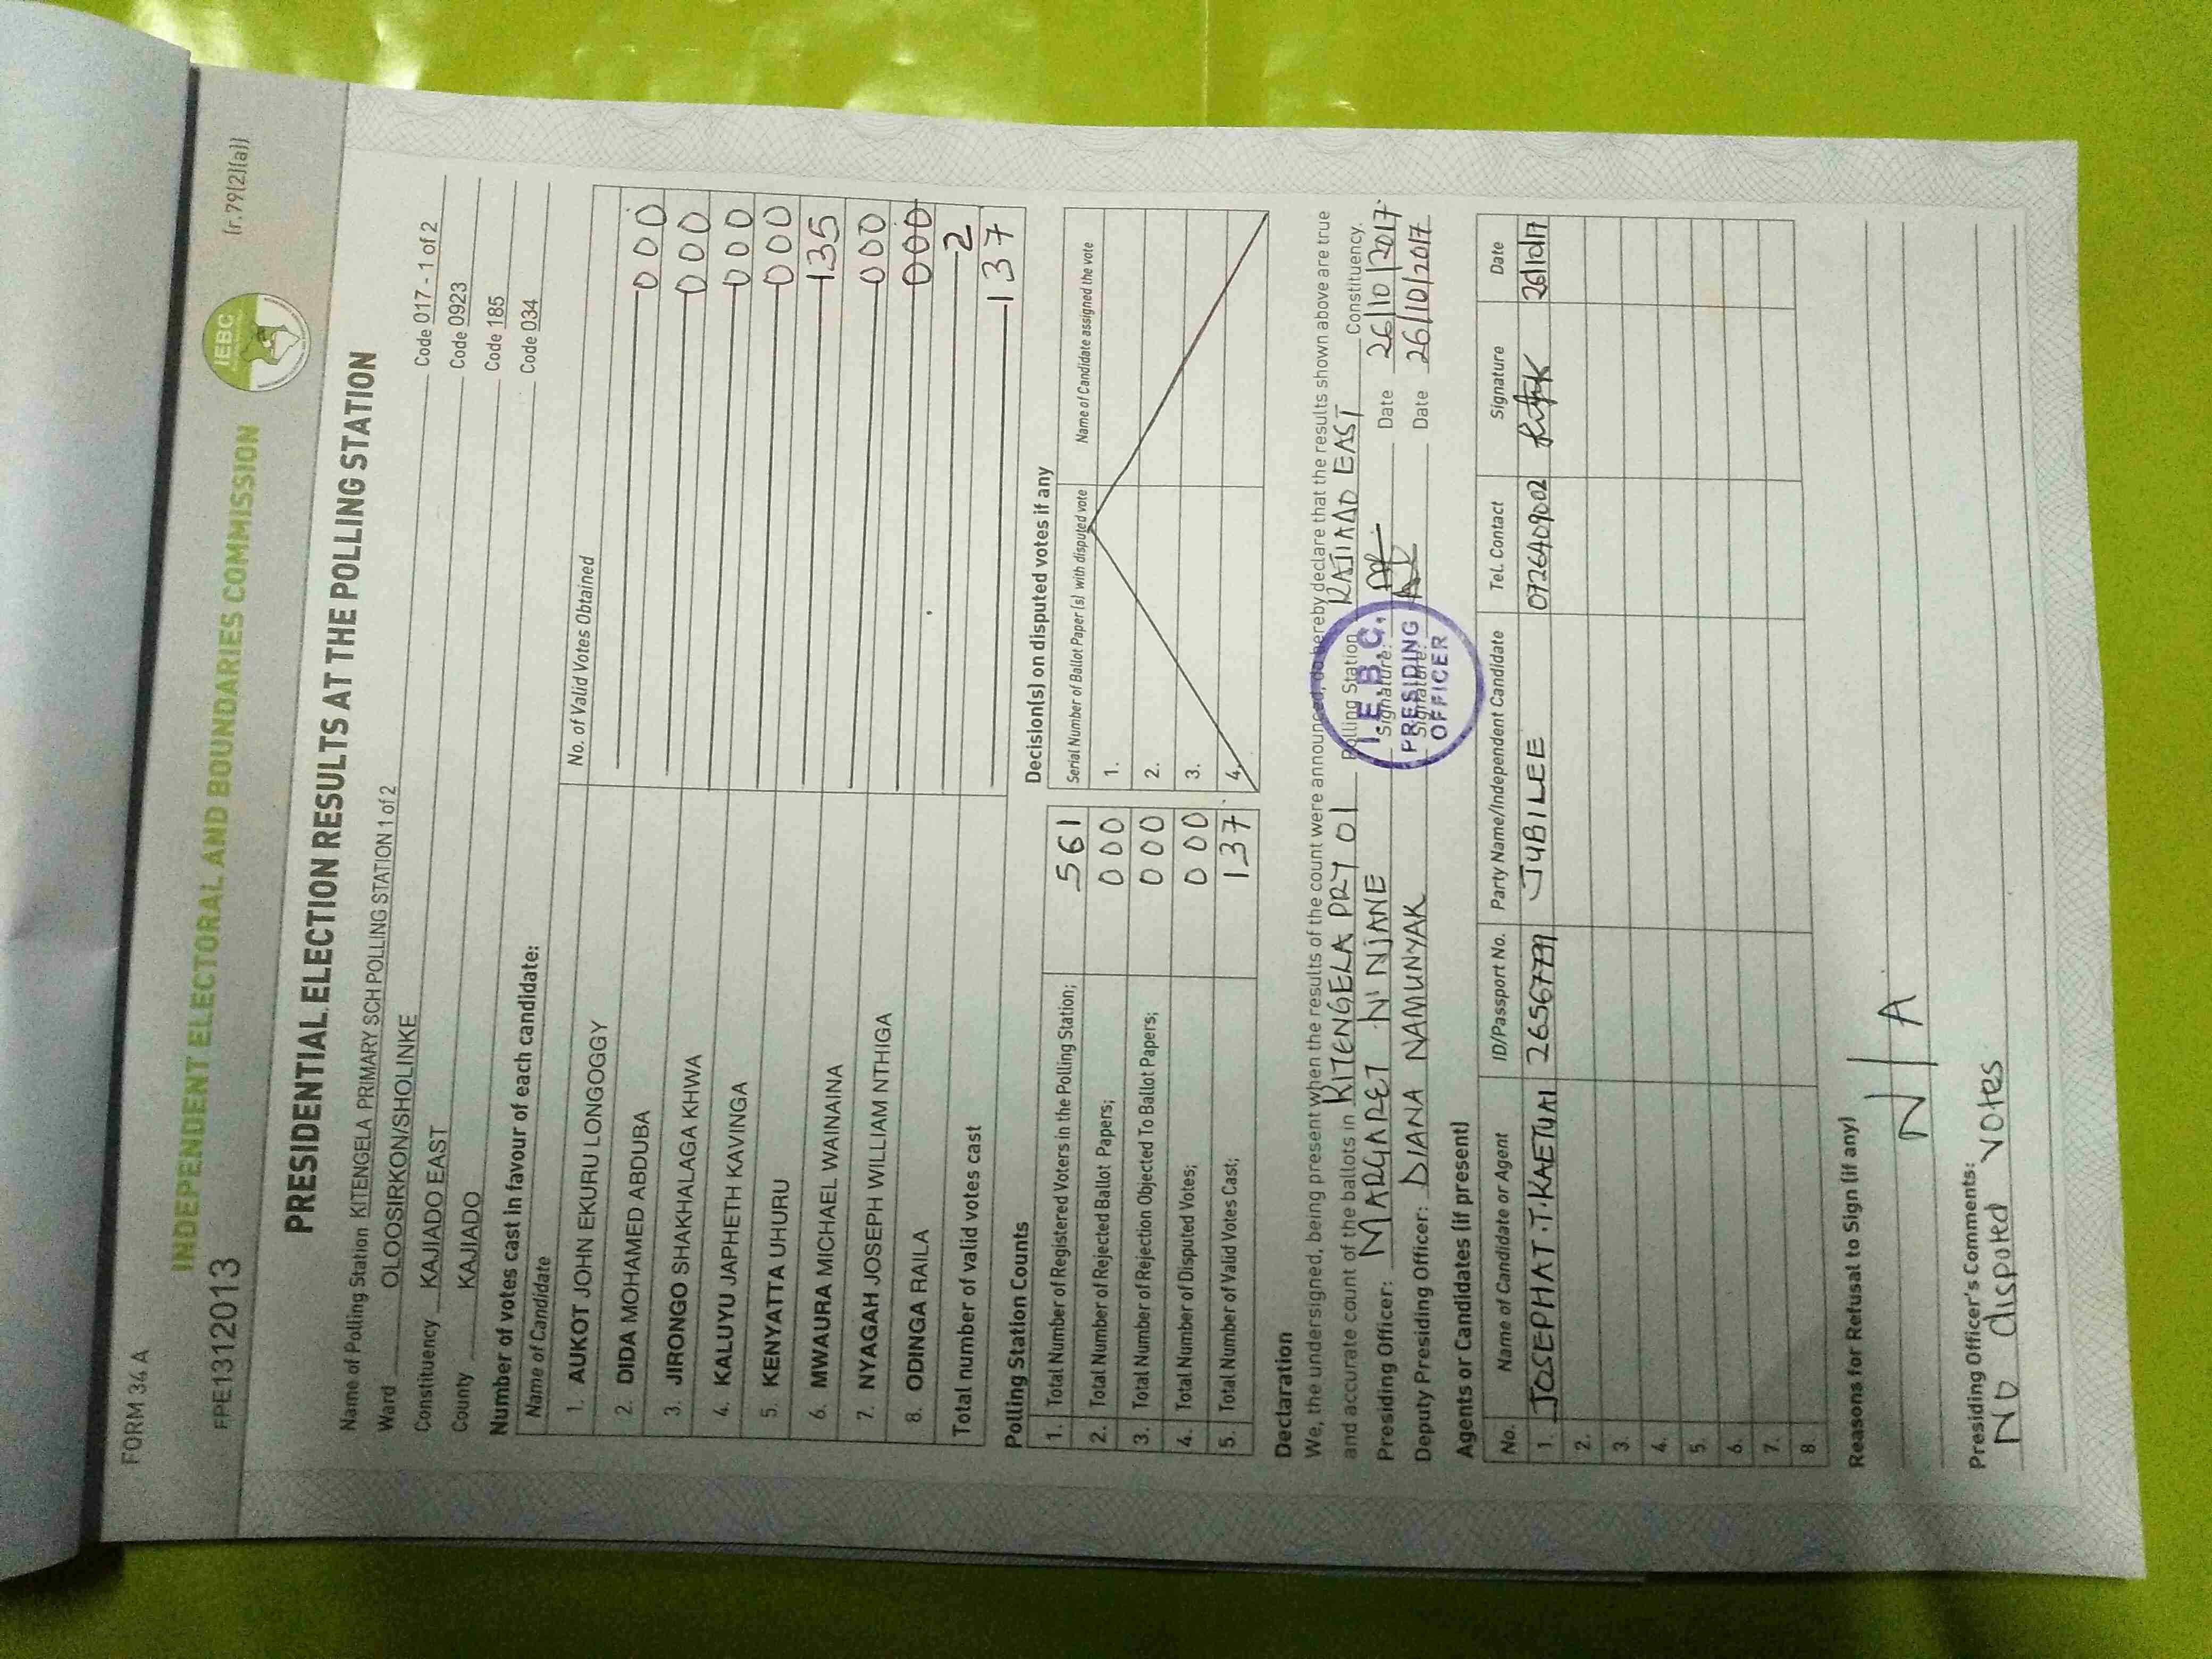 FORM 34 A
(r.79(2)(a))
FPE1312013
INDEPENDENT ELECTORAL AND BOUNDARIES COMMISSION
IEBC
PRESIDENTIAL ELECTION RESULTS AT THE POLLING STATION
Name of Polling Station KITENGELA PRIMARY SCH POLLING STATION 1 of 2 Code 017 - 1 of 2
Ward OLOOSIRKON/SHOLINKE Code 0923
Constituency KAJIADO EAST Code 185
County KAJIADO Code 034
Number of votes cast in favour of each candidate:
Name of Candidate No. of Valid Votes Obtained
1. AUKOT JOHN EKURU LONGOGGY 000
2. DIDA MOHAMED ABDUBA 000
3. JIRONGO SHAKHALAGA KHWA 000
4. KALUYU JAPHETH KAVINGA 000
5. KENYATTA UHURU 135
6. MWAURA MICHAEL WAINAINA 000
7. NYAGAH JOSEPH WILLIAM NTHIGA 000
8. ODINGA RAILA 2
Total number of valid votes cast 137
Polling Station Counts
1. Total Number of Registered Voters in the Polling Station; 561
2. Total Number of Rejected Ballot Papers; 000
3. Total Number of Rejection Objected To Ballot Papers; 000
4. Total Number of Disputed Votes; 000
5. Total Number of Valid Votes Cast; 137
Decision(s) on disputed votes if any
Serial Number of Ballot Paper(s) with disputed vote Name of Candidate assigned the vote
1.
2.
3.
4.
Declaration
We, the undersigned, being present when the results of the count were announced, do hereby declare that the results shown above are true
and accurate count of the ballots in KITENGELA PRY 01 Polling Station KAJIADO EAST Constituency.
Presiding Officer: MARGARET N NJANE Signature: Date 26/10/2017
Deputy Presiding Officer: DIANA NAMUNYAK Signature: Date 26/10/2017
I.E.B.C.
PRESIDING
OFFICER
Agents or Candidates (if present)
No. Name of Candidate or Agent ID/Passport No. Party Name/Independent Candidate Tel. Contact Signature Date
1. JOSEPHAT.T.KAETUAI 26567779 JUBILEE 0726409002 26/10/17
2.
3.
4.
5.
6.
7.
8.
Reasons for Refusal to Sign (if any)
N/A
Presiding Officer's Comments:
No disputed votes